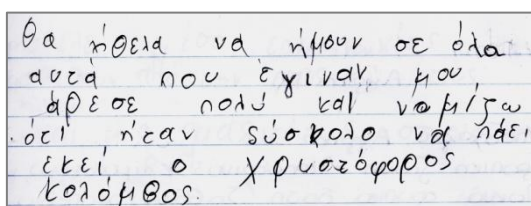 θα ήθελα να ήμουν σε όλα
αυτά που έγιναν μου
άρεσε πολύ και νομίζω
ότι ήταν δύσκολο να πάει
εκεί ο χρυστόφορος
κολόμβος.